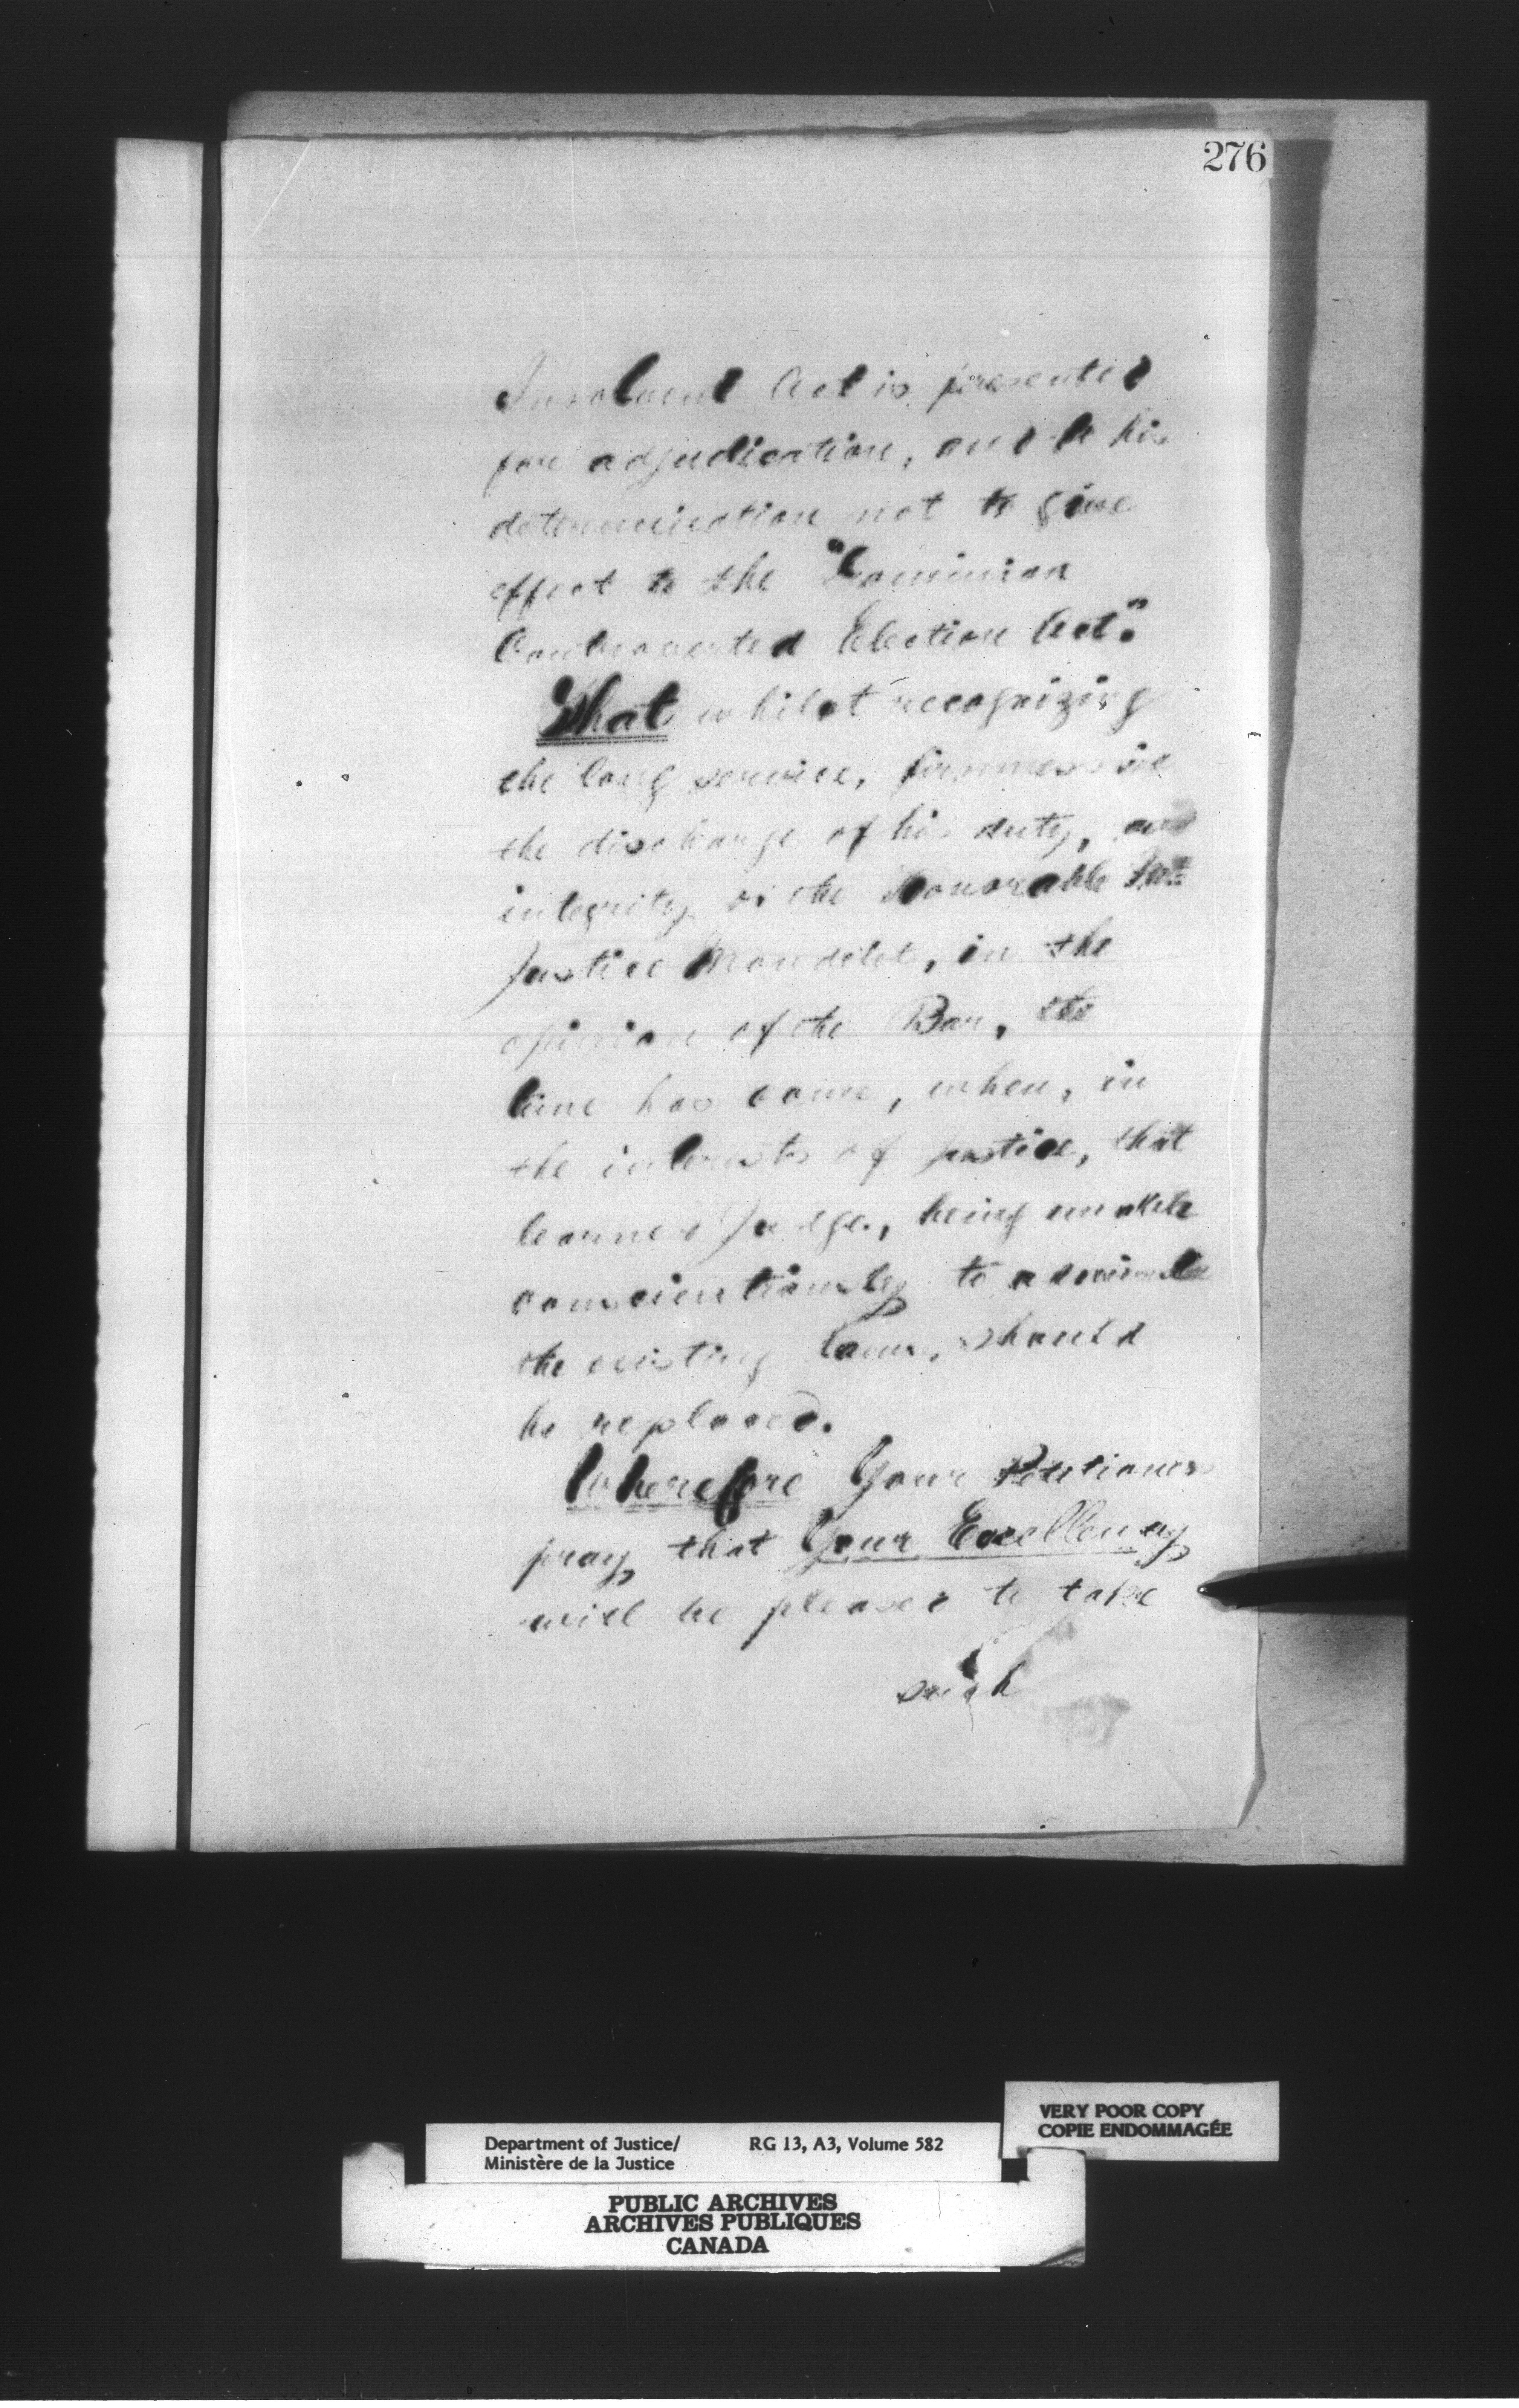 276
Insolvent Act is presented
for adjudication, and to his
determination not to give
effect to the "Dominion
Controverted Election Act".
That whilst recognizing
the long service, firmness in
the discharge of his duty, and
integrity of the Honorable Mr.
Justice Mondelet, in the
opinion of the Bar, the
time has come, when, in
the interests of justice, that
learned Judge, being unable
conscientiously to administer
the existing laws, should
be replaced.
Wherefore Your Petitioners
pray that Your Excellency
will be pleased to take
such
VERY POOR COPY
COPIE ENDOMMAGÉE
Department of Justice/ RG 13, A3, Volume 582
Ministère de la Justice
PUBLIC ARCHIVES
ARCHIVES PUBLIQUES
CANADA